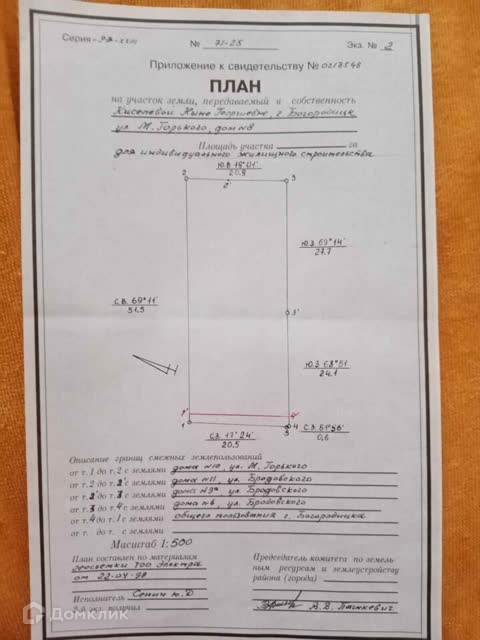 Серия - РФ-XXIII № 71-25 Экз. № 2
Приложение к свидетельству № 0218548
ПЛАН
на участок земли, передаваемый в собственность
Киселевой Нине Георгиевне, г. Богородицк
ул. М. Горького, дом №8
Площадь участка га
для индивидуального жилищного строительства
Ю.В. 19°01'
20,8
2 2' 3
Ю.З. 69°14'
27,7
С.В. 69°11'
51,5
3'
Ю.З. 68°51
24,1
1' 4'
1 5 4
С.З. 17°24'
20,5
С.З. 51°56'
0,6
Описание границ смежных землепользований
от т. 1 до т. 2 с землями дома №10, ул. М. Горького
от т. 2 до т. 2' с землями дома №11, ул. Бродовского
от т. 2' до т. 3' с землями дома №9а ул. Бродовского
от т. 3' до т. 4 с землями дома №6, ул. Бродовского
от т. 4 до т. 1 с землями общего пользования г. Богородицка
от т. до т. с землями
Масштаб 1:500
План составлен по материалам
геосъемки ТОО Электра
от 22-04-98
Исполнитель Сенич Ю.Д
2-й экз. получил
Председатель комитета по земель-
ным ресурсам и землеустройству
района (города)
А.В. Пашкевич
Домклик